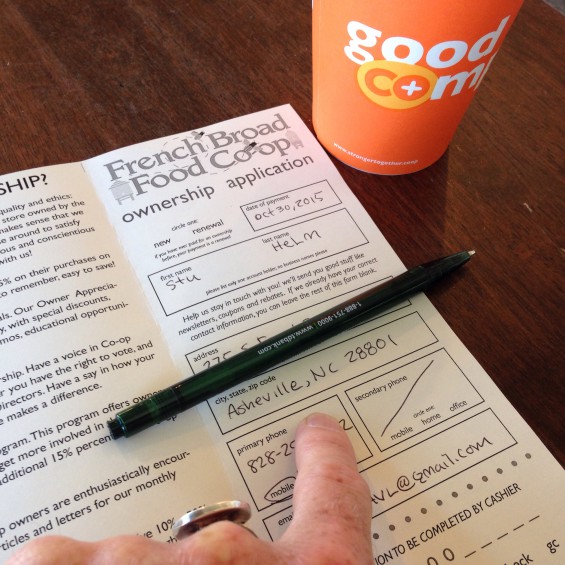 good
co+op
www.strongertogether.coop
SHIP?
quality and ethics:
store owned by the
makes sense that we
around to satisfy
and conscientious
with us!
5% on their purchases on
to remember, easy to save!
Our Owner Apprecia-
with special discounts,
educational opportuni-
Have a voice in Co-op
you have the right to vote, and
Directors. Have a say in how your
makes a difference.
This program offers
get more involved in
additional 15%
owners are enthusiastically encour-
and letters for our monthly
10%
French Broad
Food Co-op
ownership application
circle one:
new renewal
if you have ever paid for an ownership
before, your payment is a renewal
date of payment
Oct 30, 2015
first name
Stu
last name
Helm
please list only one account holder, no business names please
Help us stay in touch with you! we'll send you good stuff like
newsletters, coupons and rebates. If you already have your correct
contact information, you can leave the rest of this form blank.
address
www.tdbank.com 1-888-751-9000
city, state, zip code
Asheville, NC 28801
primary phone
828-
mobile
secondary phone
circle one:
mobile home office
email
AVL@gmail.com
TO BE COMPLETED BY CASHIER
gc